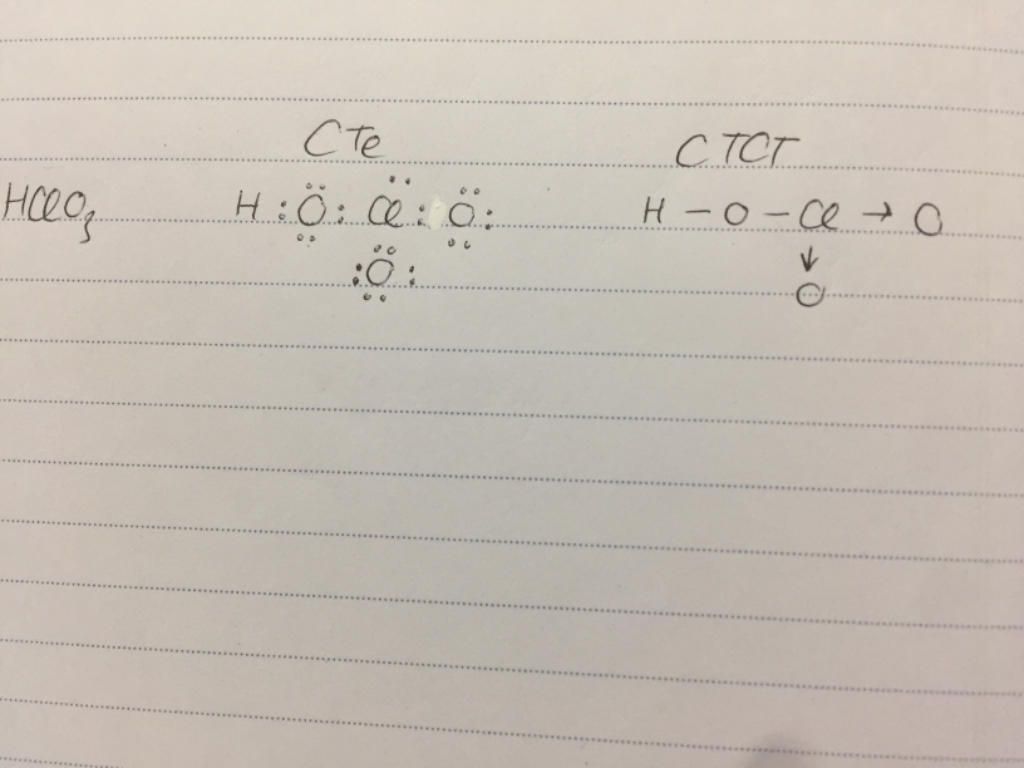 CTe CTCT
HClO₃ H :Ö: Cl : O : H – O – Cl → O
:O: ↓
O